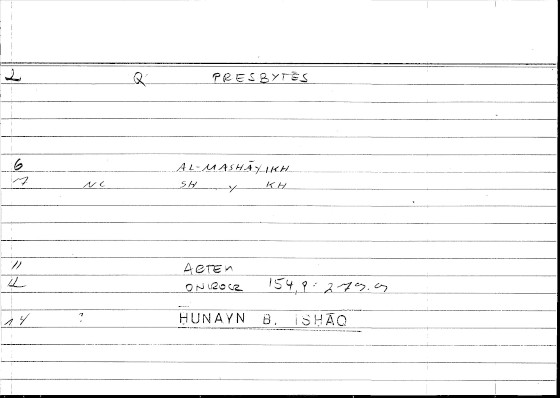 2 Q PRESBYTĒS
6 AL-MASHĀYIKH
7 NC SH Y KH
11 ARTEM
12 ONIROCR 154,9 : 279.9
14 ? HUNAYN B. ISHĀQ